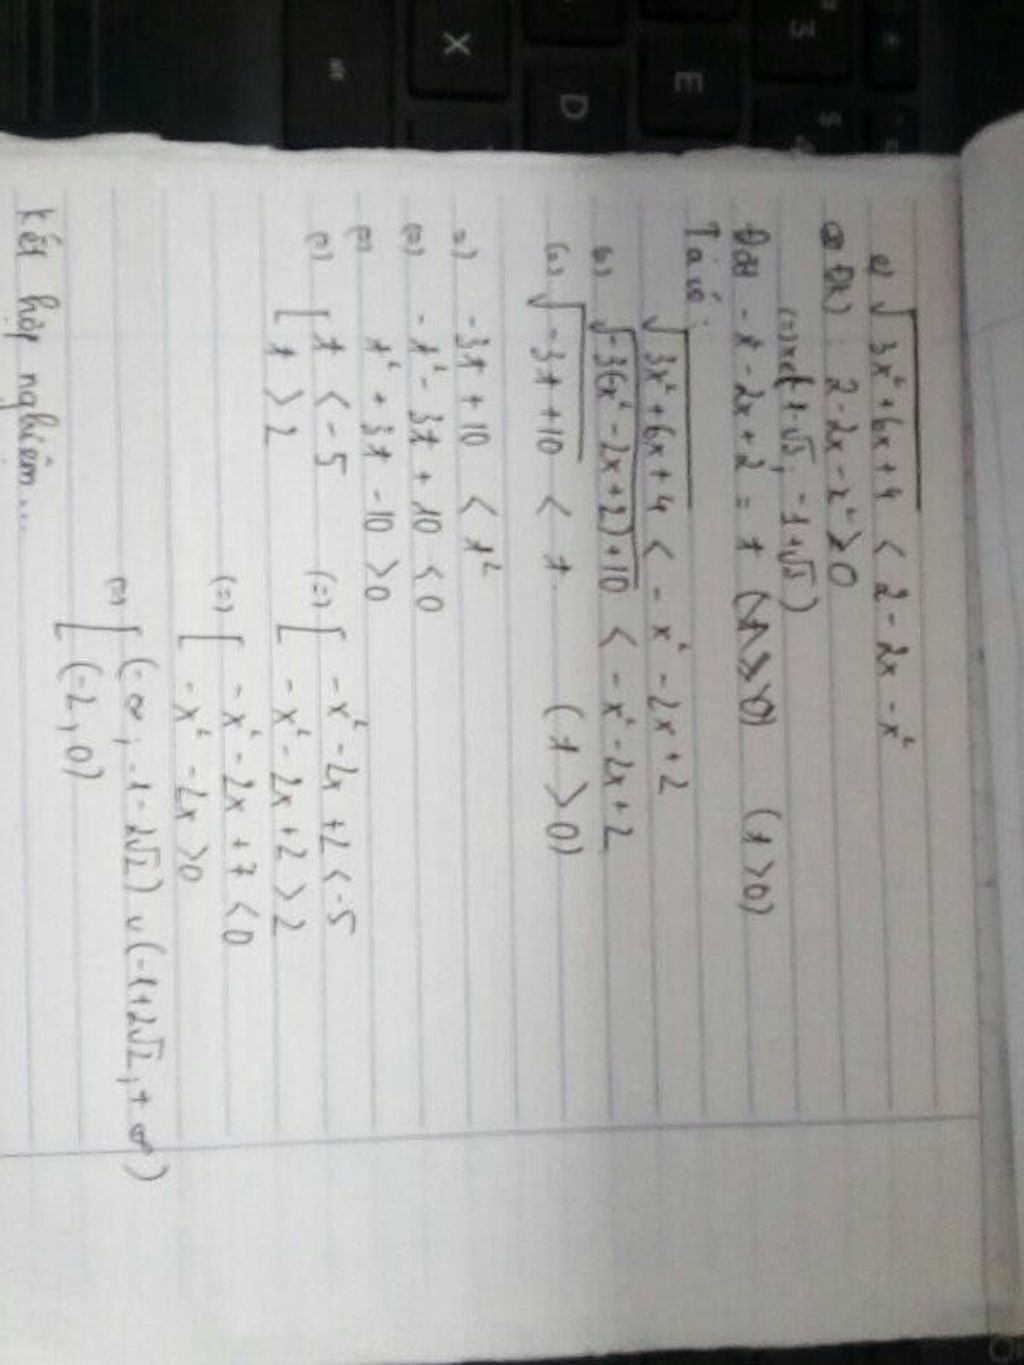 e) √(3x²+6x+4) < 2 - 2x - x²
ĐK: 2 - 2x - x² ≥ 0
(=) x∈[-1-√3; -1+√3)
Đặt -x² - 2x + 2 = t (t > 0)
Ta có:
√(3x²+6x+4) < -x² - 2x + 2
(=) √(-3(-x² - 2x + 2) + 10) < -x² - 2x + 2
(=) √(-3t + 10) < t (t > 0)
=) -3t + 10 < t²
(=) -t² - 3t + 10 < 0
(=) t² + 3t - 10 > 0
(=) [ t < -5
[ t > 2
(=) [ -x² - 2x + 2 < -5
[ -x² - 2x + 2 > 2
(=) [ -x² - 2x + 7 < 0
[ -x² - 2x > 0
(=) [ (-∞; -1-2√2) ∪ (-1+2√2, +∞)
[ (-2, 0)
Kết hợp nghiệm...
X
D
E
3
$
4